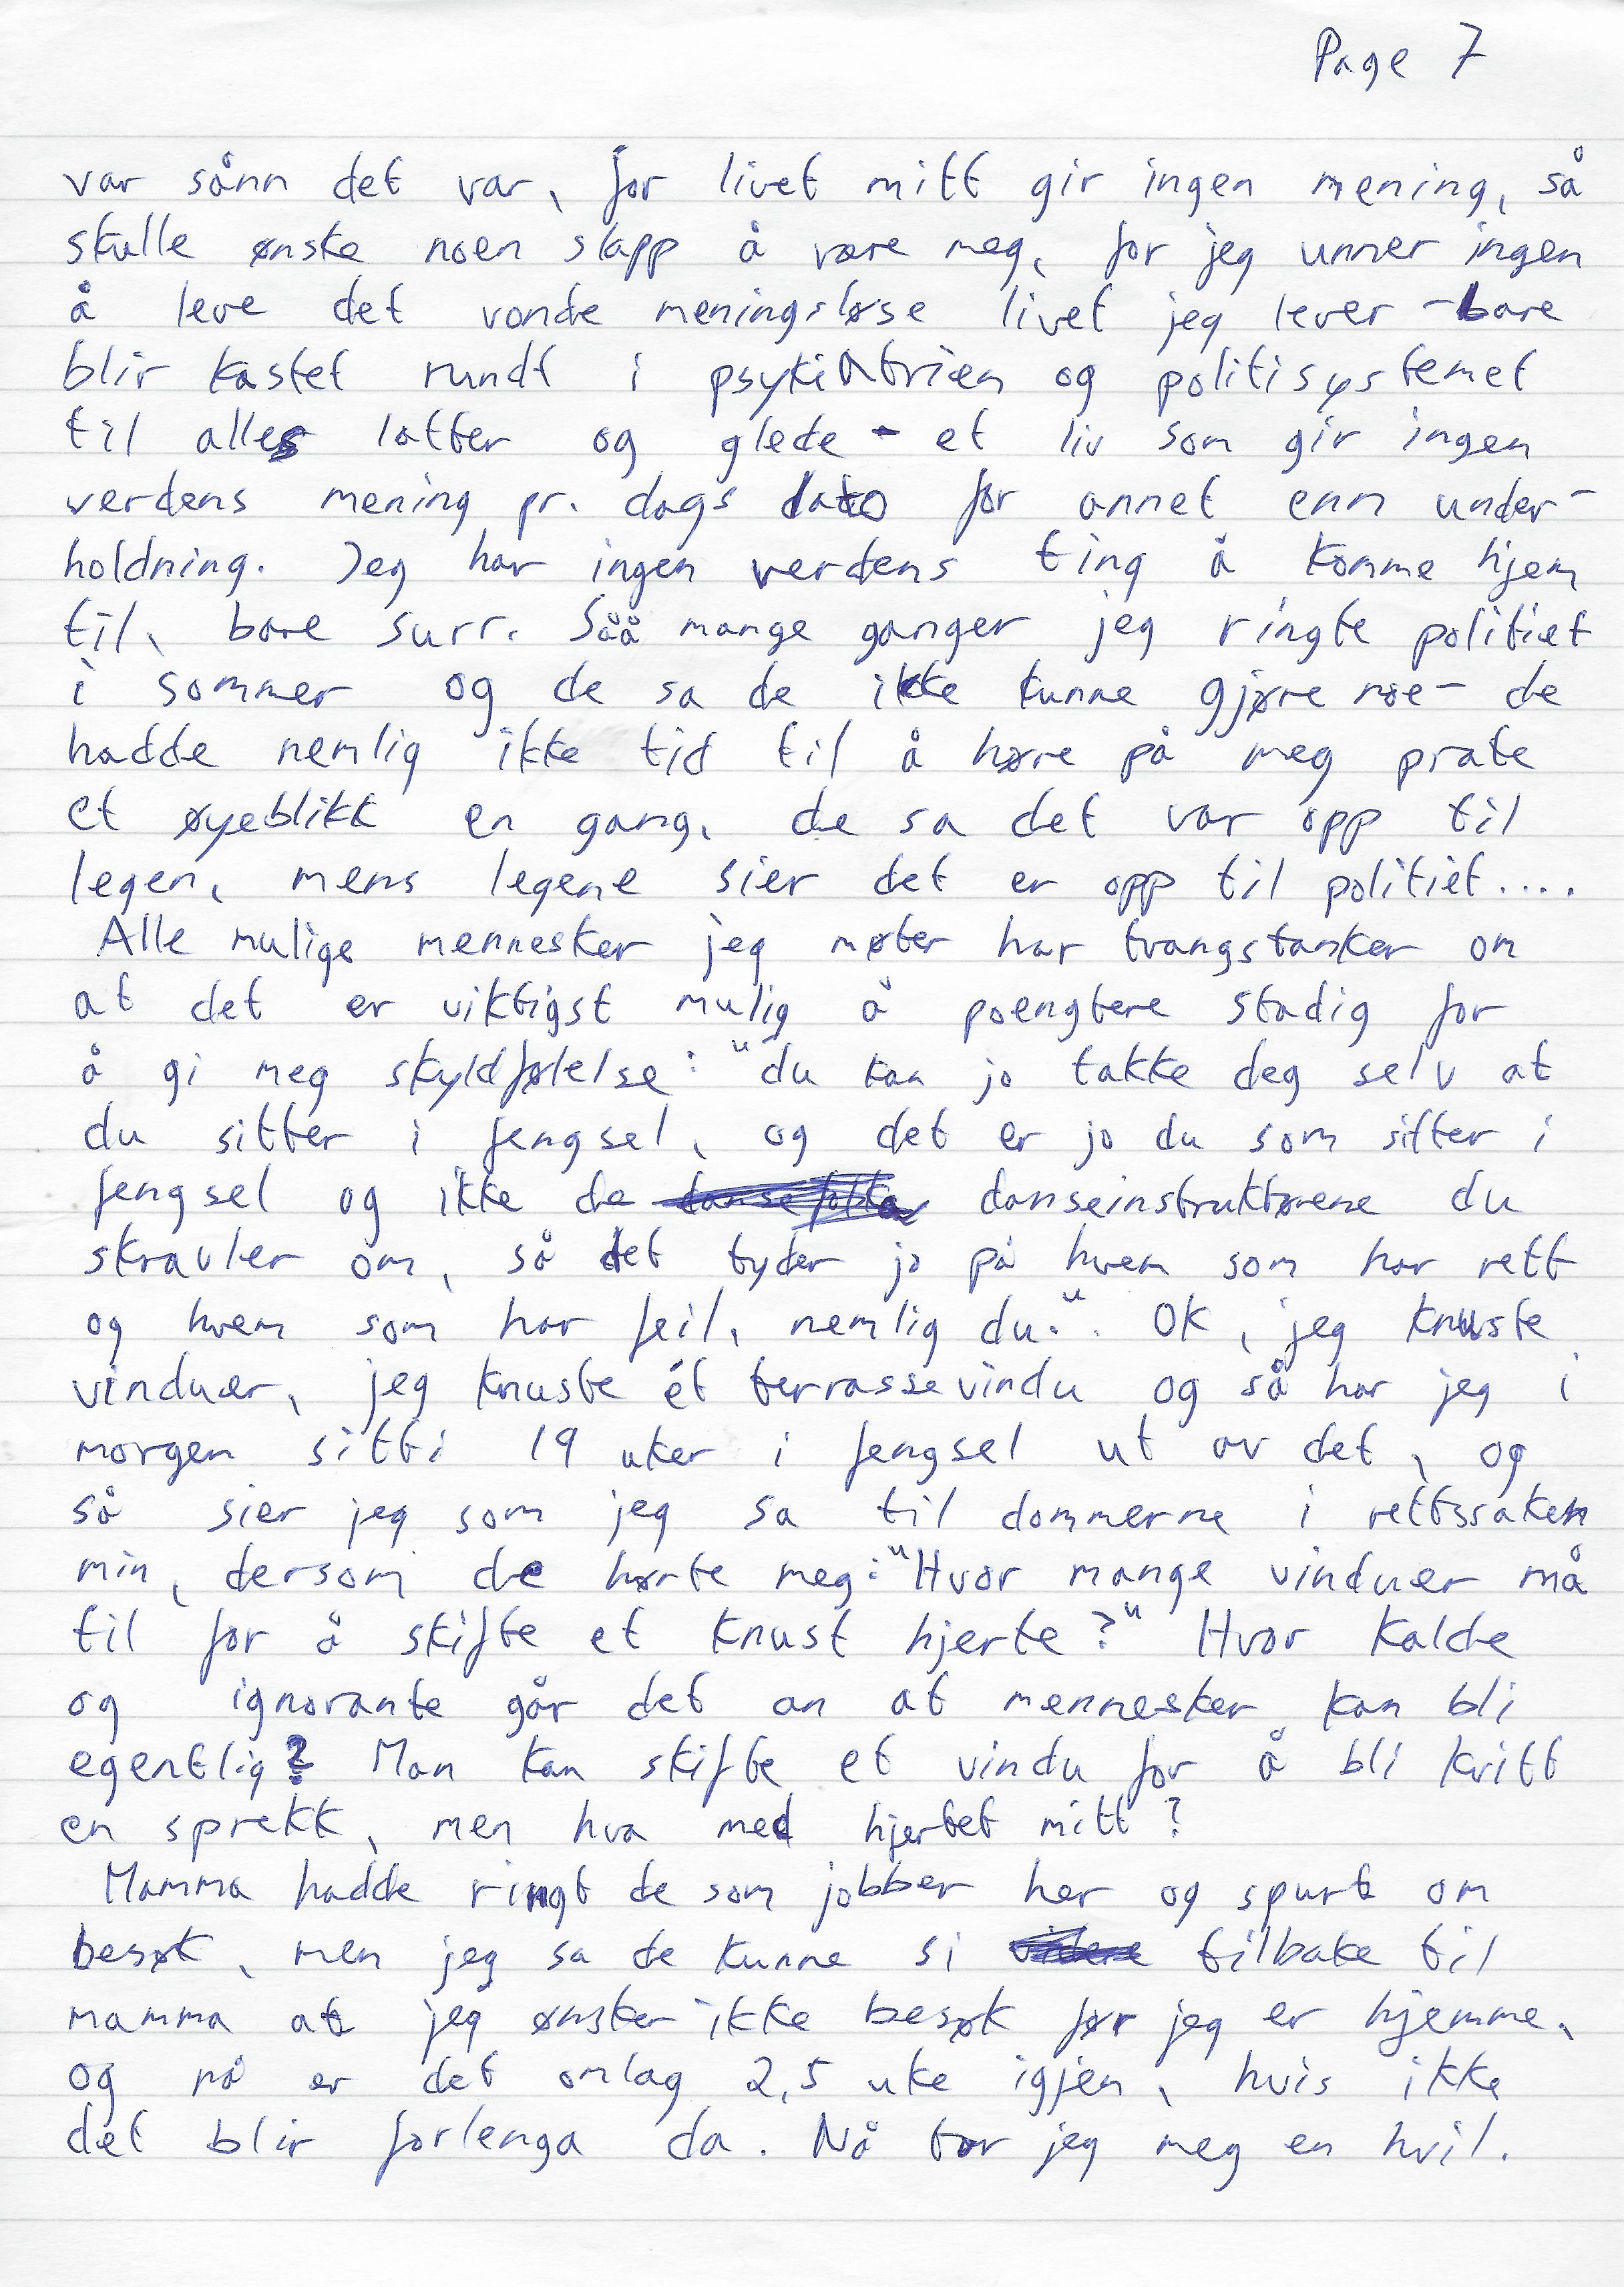 Page 7
var sånn det var, for livet mitt gir ingen mening, så
skulle ønske noen slapp å være meg, for jeg unner ingen
å leve det vonde meningsløse livet jeg lever - bare
blir kastet rundt i psykiatrien og politisystemet
til alles latter og glede - et liv som gir ingen
verdens mening pr. dags dato for annet enn under-
holdning. Jeg har ingen verdens ting å komme hjem
til, bare surr. Såå mange ganger jeg ringte politiet
i sommer og de sa de ikke kunne gjøre noe - de
hadde nemlig ikke tid til å høre på meg prate
et øyeblikk en gang, de sa det var opp til
legen, mens legene sier det er opp til politiet....
Alle mulige mennesker jeg møter har tvangstanker om
at det er viktigst mulig å poengtere stadig for
å gi meg skyldfølelse: "du kan jo takke deg selv at
du sitter i fengsel, og det er jo du som sitter i
fengsel og ikke de danseinstruktørene du
skravler om, så det tyder jo på hvem som har rett
og hvem som har feil, nemlig du.". OK, jeg knuste
vinduer, jeg knuste ét terrassevindu og så har jeg i
morgen sitti 19 uker i fengsel ut av det, og
så sier jeg som jeg sa til dommerne i rettssaken
min, dersom de hørte meg: "Hvor mange vinduer må
til for å skifte et knust hjerte?" Hvor kalde
og ignorante går det an at mennesker kan bli
egentlig? Man kan skifte et vindu for å bli kvitt
en sprekk, men hva med hjertet mitt?
Mamma hadde ringt de som jobber her og spurt om
besøk, men jeg sa de kunne si tilbake til
mamma at jeg ønsker ikke besøk før jeg er hjemme,
og nå er det omlag 2,5 uke igjen, hvis ikke
det blir forlenga da. Nå tar jeg meg en hvil.